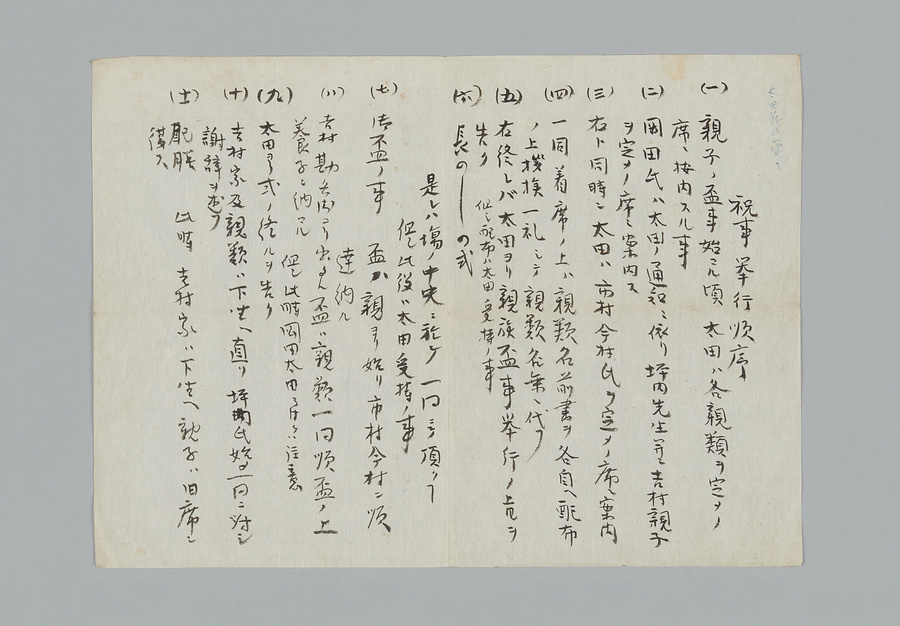 祝事挙行順序
(一) 親子ノ盃事始マル頃 太田ハ各親類ヲ定メノ
席ニ按内スル事
(二) 岡田氏ハ太田ノ通知ニ依リ坪内先生並ニ吉村親子
ヲ定メノ席ニ案内ス
(三) 右ト同時ニ太田ハ市村今村氏ヲ定メノ席ニ案内
(四) 一同着席ノ上ハ親類名前書ヲ各自ヘ配布
ノ上挨拶一礼シテ親類名乗ニ代フ
(五) 右終レバ太田ヨリ親族盃事挙行ノ旨ヲ
告ク 但シ配布ハ太田受持ノ事
(六) 長のしの式
是レハ場ノ中央ニ於ケ一同ニ頂カ
但シ此役ハ太田受持ノ事
(七) 流盃ノ事 盃ハ親ヨリ始リ市村今村ニ順
達納ル
(八) 吉村勘兵衛ヨリ出タル盃ハ親類一同順盃ノ上
養子ニ納マル 但シ此時岡田太田 注意
(九) 太田ヨリ式ノ終ルヲ告ク
(十) 吉村家及親類ハ下坐ヘ直リ 坪内氏始メ一同ニ対シ
謝辞ヲ述フ
(十一) 配膳 此時 吉村家ハ下坐ヘ親子ハ旧席ニ
復ス